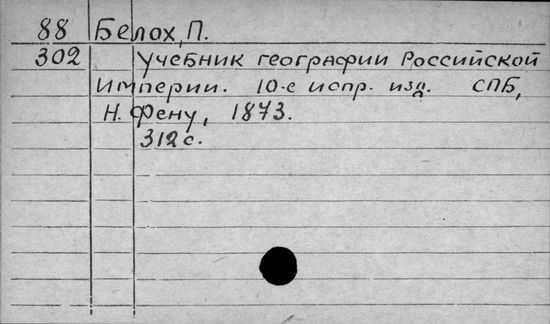 88 Белох, П.
302 Учебник географии Российской
Империи. 10-е испр. изд. СПБ,
Н. Фену, 1873.
312 с.